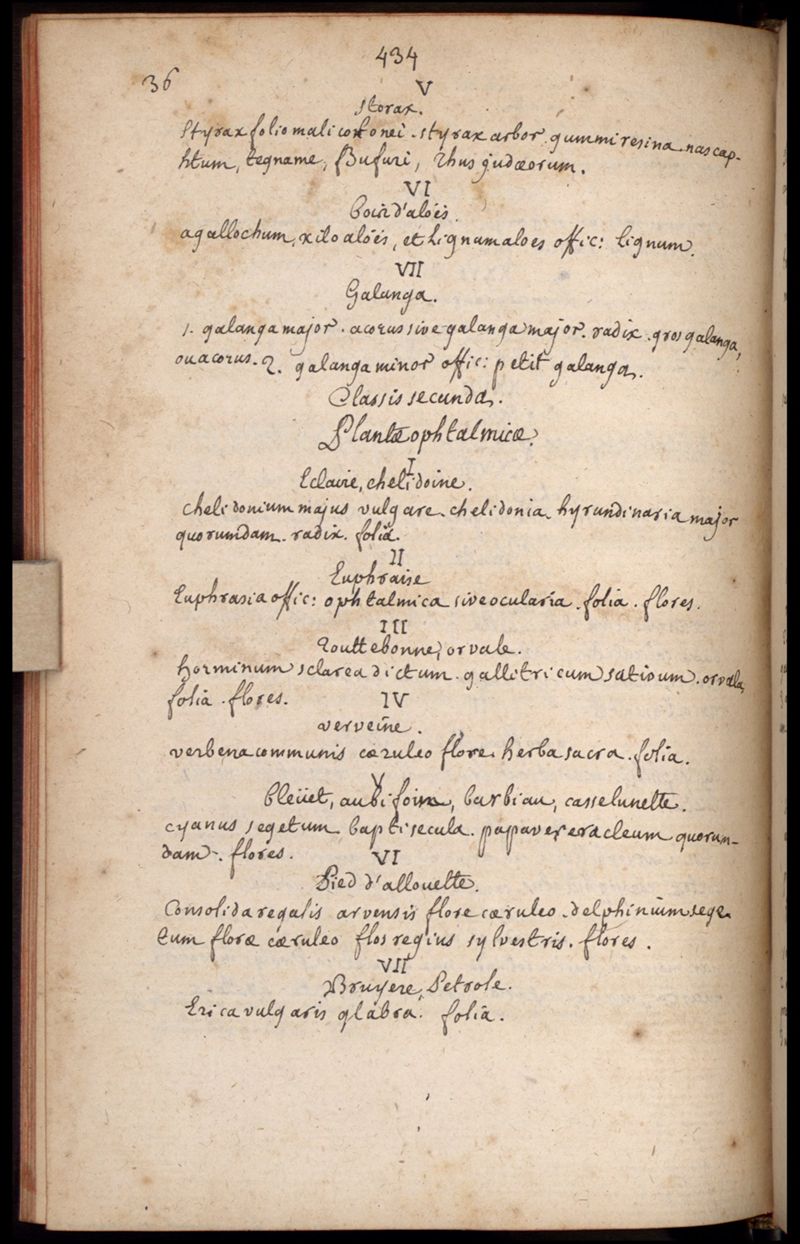 434
36
V
Storax.
Styrax folio mali cotonei. styrax arbor. gummi resina. nascap-
htum, tegname, Bufuri, thus judæorum.
VI
bois d'aloës.
agallochum, xilo aloës, et lignum aloes offic: lignum.
VII
Galanga.
1. galanga major. acorus sive galanga major. radix. gros galanga,
ou acorus. 2. galanga minor offic: petit galanga.
Classis secunda.
Plantæ ophtalmicæ.
I
Eclaire, chelidoine.
chelidonium majus vulgare. chelidonia. hyrundinaria major
quorumdam. radix. folia.
II
Euphraise
Euphrasia offic: ophtalmica sive ocularia. folia. flores.
III
Toutte bonne, orvale.
horminum sclarea dictum. gallitricum sativum. orvala,
folia. flores.
IV
verveine.
verbena communis cæruleo flore. herba sacra. folia.
V
bleüet, aubifoine, barbiau, casselunette.
cyanus segetum. baptisecula. papaver eracleum quorun-
dam. flores.
VI
Pied d'allouette.
Consolida regalis arvensis flore cæruleo. delphinium sege
tum floræ cæruleo flos regius sylvestris. flores.
VII
Bruyere, Petrole.
Erica vulgaris glabra. folia.